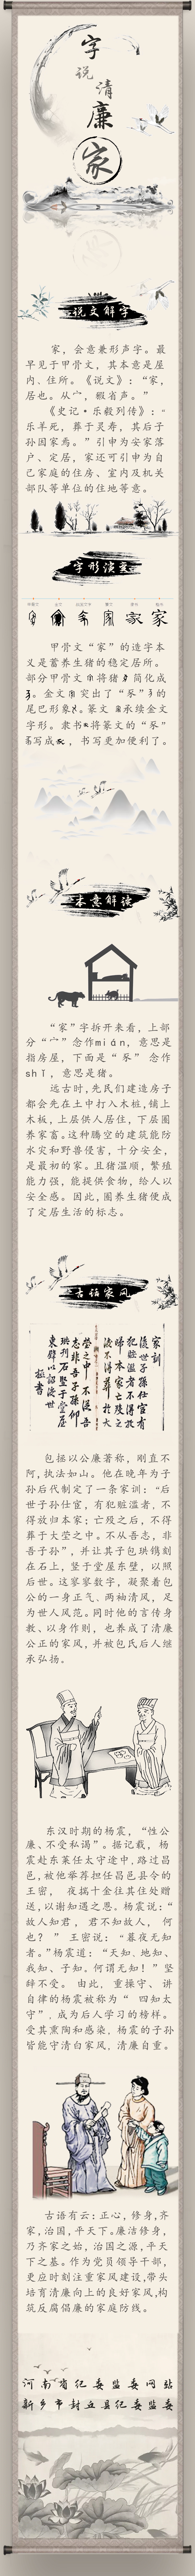 字
说
清
廉
家
说文解字
家，会意兼形声字。最
早见于甲骨文，其本意是屋
内、住所。《说文》：“家，
居也。从宀，豭省声。”
《史记·乐毅列传》：“
乐羊死，葬于灵寿，其后子
孙因家焉。”引申为安家落
户、定居，家还可引申为自
己家庭的住房、室内及机关
部队等单位的住地等意。
字形演变
甲骨文“家”的造字本
义是蓄养生猪的稳定居所。
部分甲骨文将猪简化成
。金文突出了“豕”的
尾巴形象。篆文承续金文
字形。隶书将篆文的“豕”
写成，书写更加便利了。
本意解读
“家”字拆开来看，上部
分“宀”念作mián，意思是
指房屋，下面是“豕”念作
shǐ，意思是猪。
远古时，先民们建造房子
都会先在土中打入木桩，铺上
木板，上层供人居住，下层圈
养家畜。这种腾空的建筑能防
水灾和野兽侵害，十分安全，
是最初的家。且猪温顺，繁殖
能力强，能提供食物，给人以
安全感。因此，圈养生猪便成
了定居生活的标志。
古语家风
家训
后世子孙仕宦有
犯赃滥者不得放
归本家亡殁之后
不得葬于大
茔之中不从吾
志非吾子孙
珙刊石竖于堂屋
东壁以诏后世
包拯以公廉著称，刚直不
阿，执法如山。他在晚年为子
孙后代制定了一条家训：“后
世子孙仕宦，有犯赃滥者，不
得放归本家；亡殁之后，不得
葬于大茔之中。不从吾志，非
吾子孙”，并让其子包珙镌刻
在石上，竖于堂屋东壁，以照
后世。这寥寥数字，凝聚着包
公的一身正气、两袖清风，足
为世人风范。同时他的言传身
教、以身作则，也养成了清廉
公正的家风，并被包氏后人继
承弘扬。
东汉时期的杨震，“性公
廉、不受私谒”。据记载，杨
震赴东莱任太守途中，路过昌
邑，被他举荐担任昌邑县令的
王密，夜揣十金往其住处赠
送，以谢知遇之恩。杨震说：“
故人知君，君不知故人，何
也？”王密说：“暮夜无知
者。”杨震道：“天知、地知、
我知、子知。何谓无知！”坚
辞不受。由此，重操守、讲
自律的杨震被称为“四知太
守”，成为后人学习的榜样。
受其熏陶和感染，杨震的子孙
皆能守清白家风，清廉自重。
古语有云：正心，修身，齐
家，治国，平天下。廉洁修身，
乃齐家之始，治国之源，平天
下之基。作为党员领导干部，
更应时刻注重家风建设，带头
培育清廉向上的良好家风，构
筑反腐倡廉的家庭防线。
河南省纪委监委网站
新乡市封丘县纪委监委